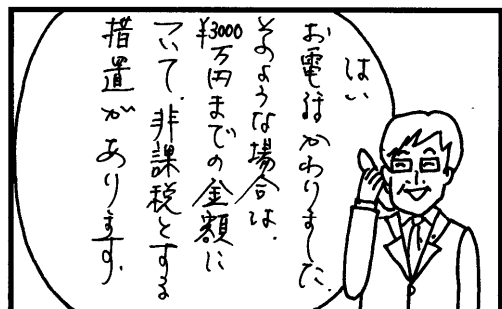 はい
お電話かわりました.
そのような場合は.
¥3000万円までの金額に
ついて.非課税とする
措置があります.